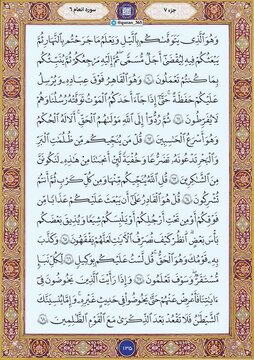 جزء ۷
@quran_365
سوره انعام ۶
وَهُوَ الَّذِي يَتَوَفَّىٰكُم بِالَّيْلِ وَيَعْلَمُ مَا جَرَحْتُم بِالنَّهَارِ ثُمَّ
يَبْعَثُكُمْ فِيهِ لِيُقْضَىٰٓ أَجَلٌ مُّسَمًّى ثُمَّ إِلَيْهِ مَرْجِعُكُمْ ثُمَّ يُنَبِّئُكُم
بِمَا كُنتُمْ تَعْمَلُونَ ۝٦٠ وَهُوَ الْقَاهِرُ فَوْقَ عِبَادِهِ وَيُرْسِلُ
عَلَيْكُمْ حَفَظَةً حَتَّىٰٓ إِذَا جَآءَ أَحَدَكُمُ الْمَوْتُ تَوَفَّتْهُ رُسُلُنَا وَهُمْ
لَا يُفَرِّطُونَ ۝٦١ ثُمَّ رُدُّوٓا إِلَى اللَّهِ مَوْلَىٰهُمُ الْحَقِّ أَلَا لَهُ الْحُكْمُ
وَهُوَ أَسْرَعُ الْحَاسِبِينَ ۝٦٢ قُلْ مَن يُنَجِّيكُم مِّن ظُلُمَاتِ الْبَرِّ
وَالْبَحْرِ تَدْعُونَهُ تَضَرُّعًا وَخُفْيَةً لَّئِنْ أَنجَىٰنَا مِنْ هَٰذِهِ لَنَكُونَنَّ
مِنَ الشَّاكِرِينَ ۝٦٣ قُلِ اللَّهُ يُنَجِّيكُم مِّنْهَا وَمِن كُلِّ كَرْبٍ ثُمَّ أَنتُمْ
تُشْرِكُونَ ۝٦٤ قُلْ هُوَ الْقَادِرُ عَلَىٰٓ أَن يَبْعَثَ عَلَيْكُمْ عَذَابًا مِّن
فَوْقِكُمْ أَوْ مِن تَحْتِ أَرْجُلِكُمْ أَوْ يَلْبِسَكُمْ شِيَعًا وَيُذِيقَ بَعْضَكُم
بَأْسَ بَعْضٍ انظُرْ كَيْفَ نُصَرِّفُ الْآيَاتِ لَعَلَّهُمْ يَفْقَهُونَ ۝٦٥ وَكَذَّبَ
بِهِ قَوْمُكَ وَهُوَ الْحَقُّ قُل لَّسْتُ عَلَيْكُم بِوَكِيلٍ ۝٦٦ لِّكُلِّ نَبَإٍ
مُّسْتَقَرٌّ وَسَوْفَ تَعْلَمُونَ ۝٦٧ وَإِذَا رَأَيْتَ الَّذِينَ يَخُوضُونَ فِىٓ
ءَايَاتِنَا فَأَعْرِضْ عَنْهُمْ حَتَّىٰ يَخُوضُوا فِي حَدِيثٍ غَيْرِهِ وَإِمَّا يُنسِيَنَّكَ
الشَّيْطَانُ فَلَا تَقْعُدْ بَعْدَ الذِّكْرَىٰ مَعَ الْقَوْمِ الظَّالِمِينَ ۝٦٨
۱۳۵